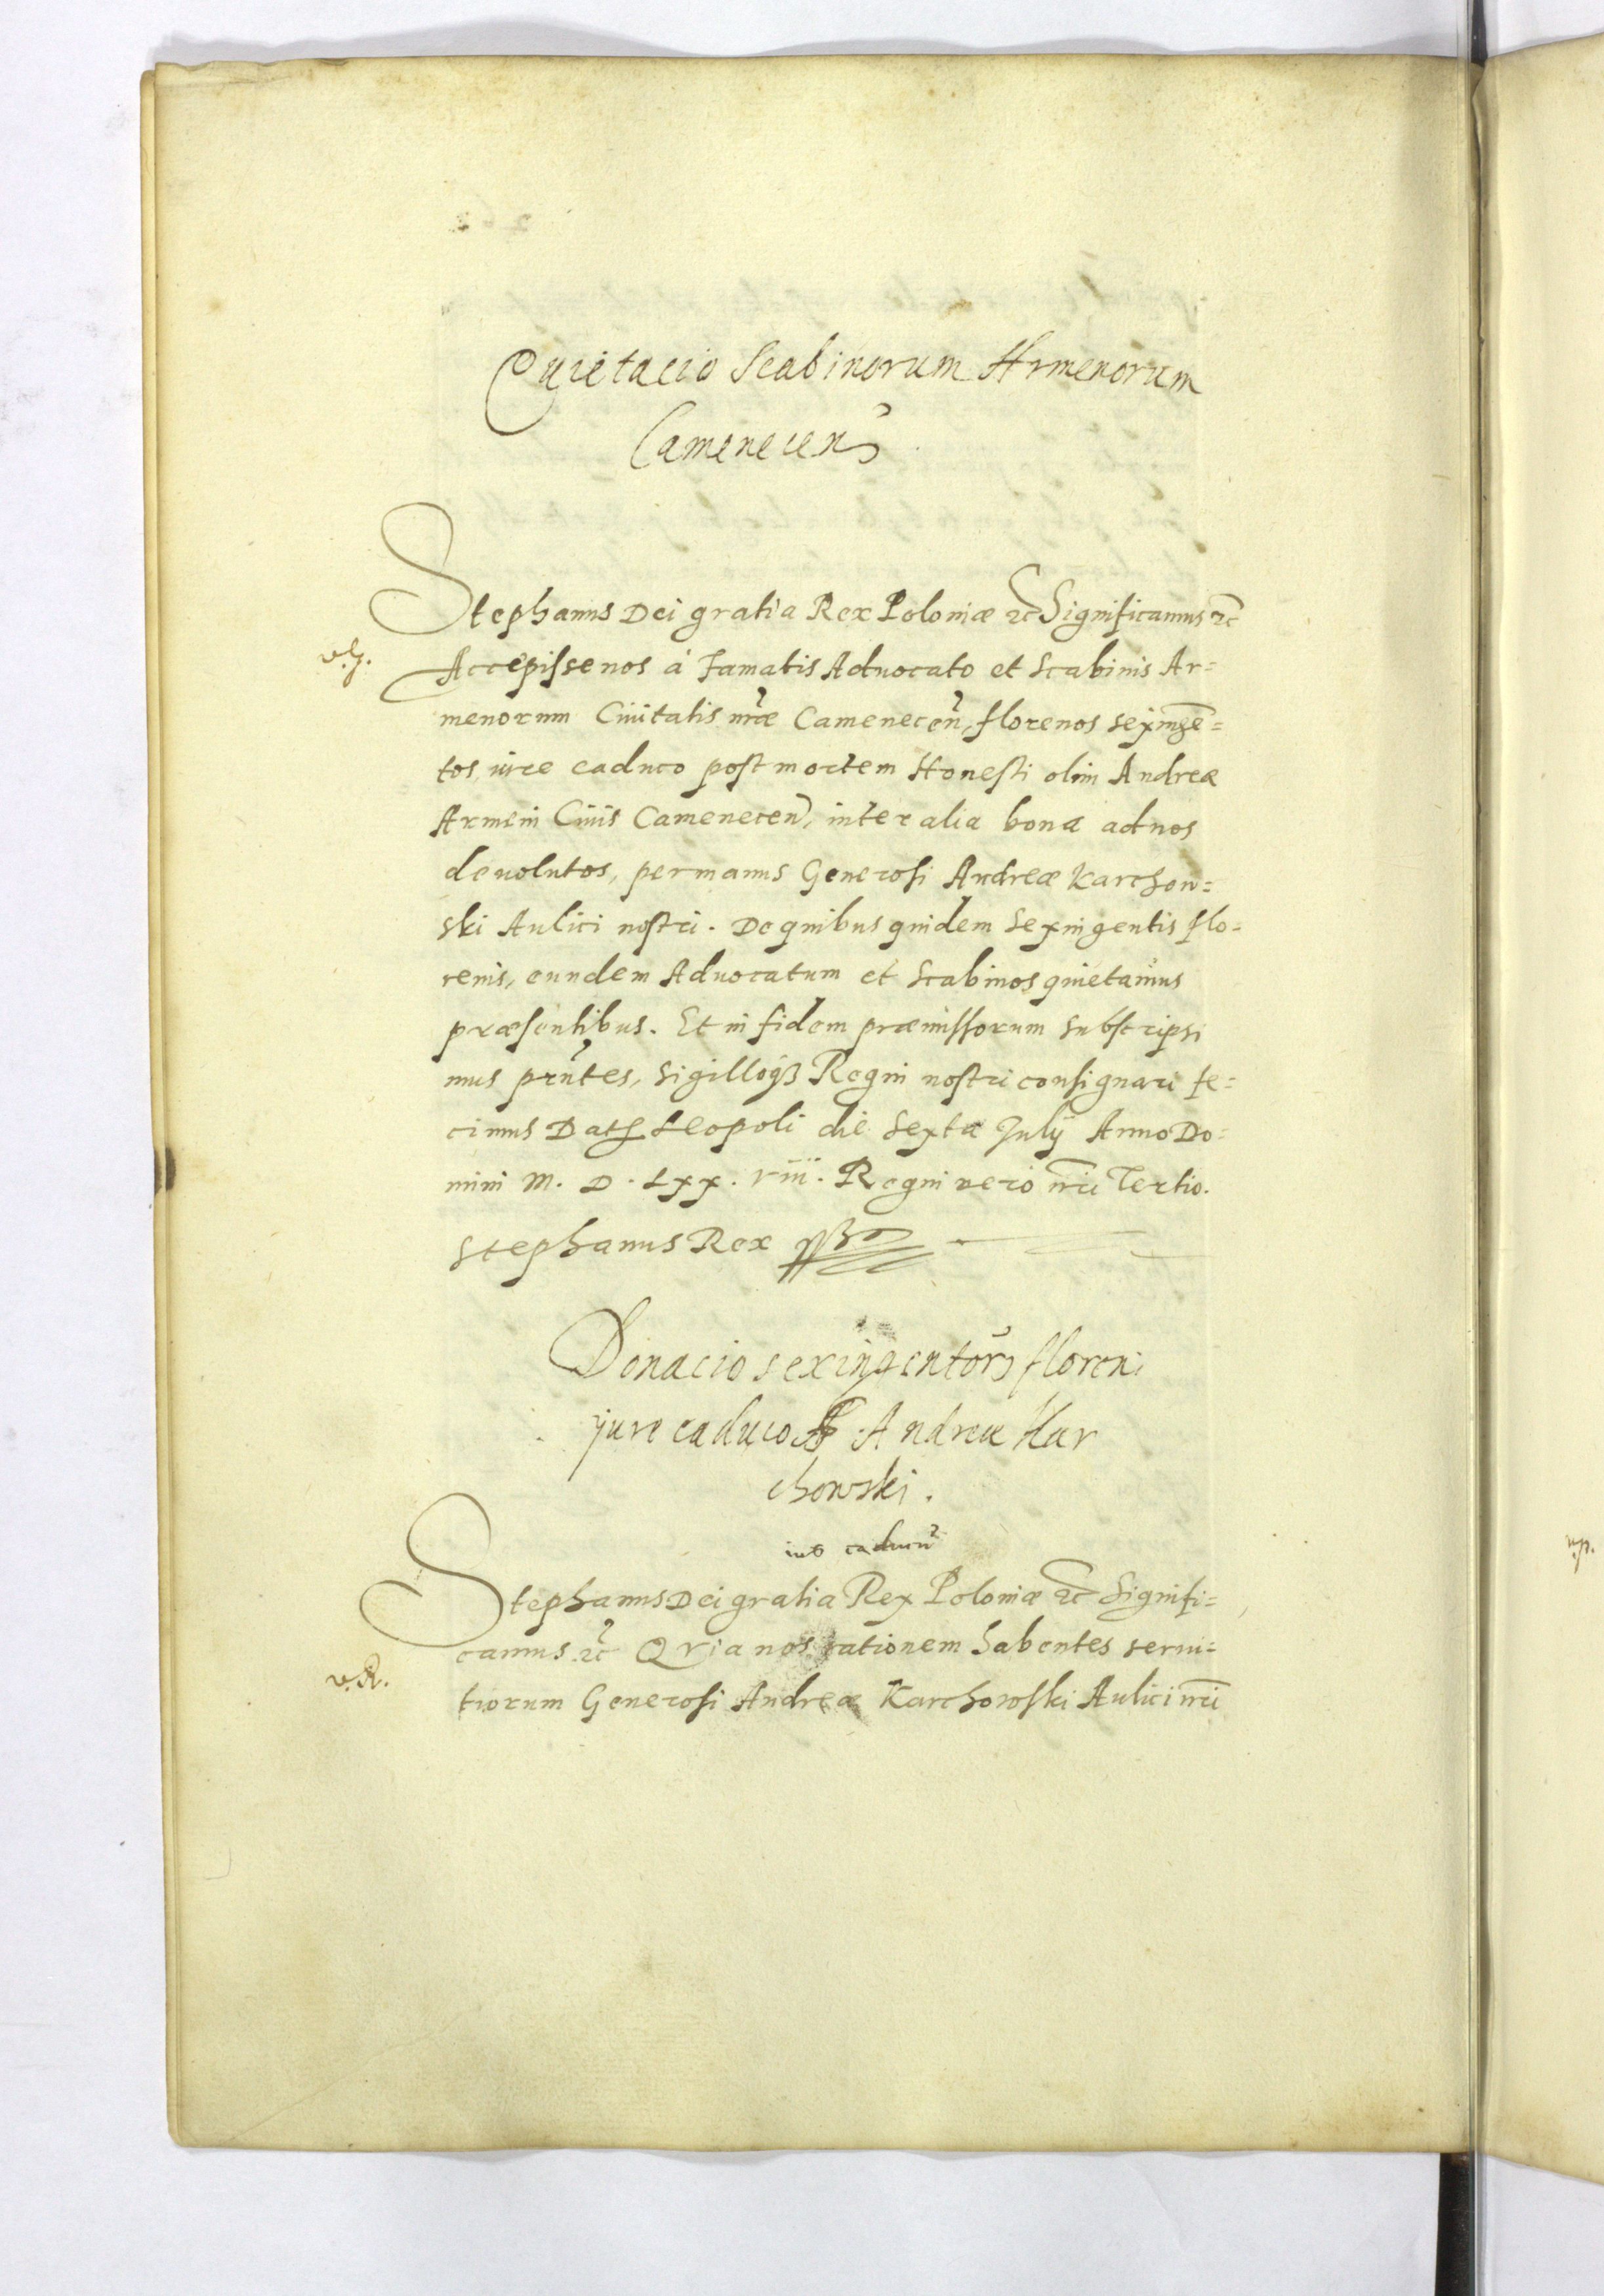 Quietacio Scabinorum Armenorum
Camenecen̄
Stephanus Dei gratia Rex Poloniæ etc Significamus etc
v.g.
Accepisse nos á Famatis Aduocato et Scabinis Ar=
menorum Ciuitatis nr̃æ Camenecen̄, florenos sexingē=
tos, iure caduco post mortem Honesti olim Andreæ
Armeni Ciuis Camenecen̄, inter alia bona ad nos
deuolutos, per manus Generosi Andreæ Karchow=
ski Aulici nostri. De quibus quidem Sexingentis flo=
renis, eundem Aduocatum et Scabinos quietamus
præsentibus. Et in fidem præmissorum subscripsi
mus prñtes, Sigilloqȝ Regni nostri consignari fe=
cimus Dat Leopoli die Sexta Julij Anno Do=
mini M. D. LXX. viii. Regni vero nr̃i Tertio.
Stephanus Rex
Donacio sexingentor̃ floreni
jure caduco Andreæ Kar
chowski.
ius caducū
Stephanus Dei gratia Rex Poloniæ etc Signifi=
camus etc Quia nos rationem habentes serui=
v.R.
tiorum Generosi Andreæ Karchowski Aulici nr̃i
v.p.